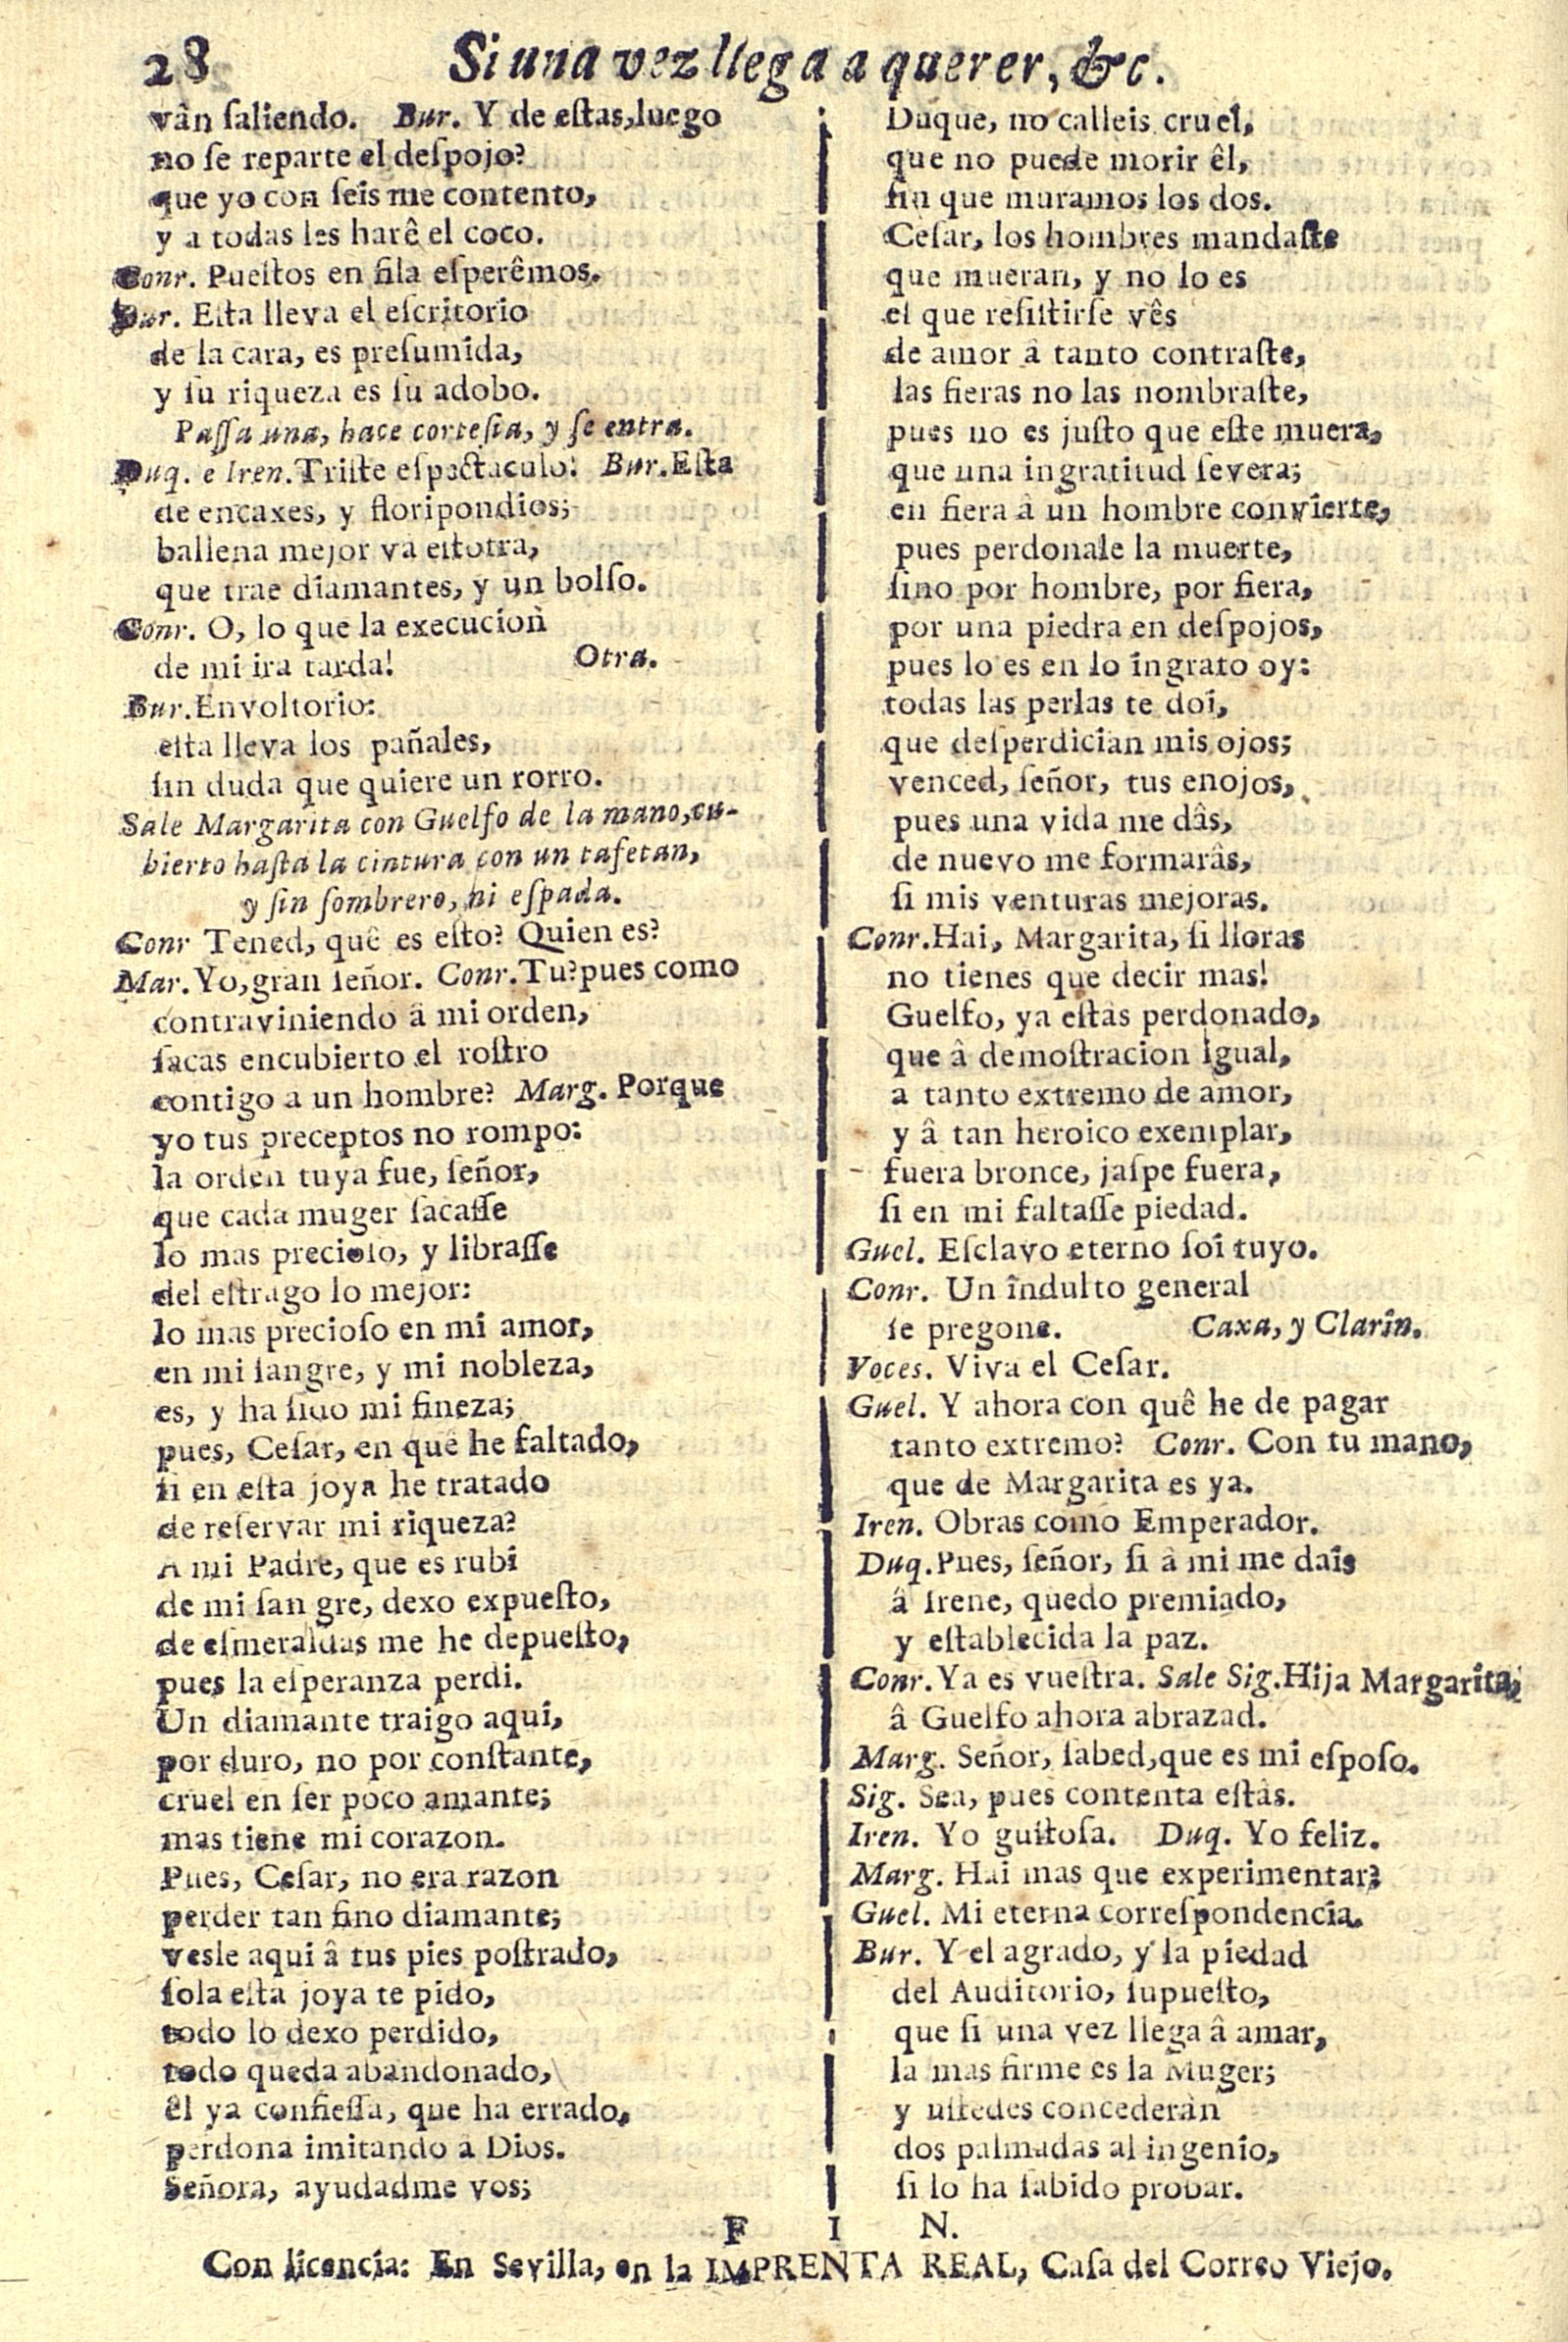 28 Si una vez llega a querer, &c.
vân ſaliendo. Bur. Y de eſtas, luego
no ſe reparte el deſpojo?
que yo con ſeis me contento,
y a todas les harê el coco.
Conr. Pueſtos en fila eſperêmos.
Bur. Eſta lleva el eſcritorio
de la cara, es preſumida,
y ſu riqueza es ſu adobo.
Paſſa una, hace corteſia, y ſe entra.
Duq. e Iren. Triſte eſpectaculo! Bur. Eſta
de encaxes, y floripondios;
ballena mejor va eſtotra,
que trae diamantes, y un bolſo.
Conr. O, lo que la execucion
de mi ira tarda! Otra.
Bur. Envoltorio:
eſta lleva los pañales,
ſin duda que quiere un rorro.
Sale Margarita con Guelfo de la mano, cu-
bierto haſta la cintura con un tafetan,
y ſin ſombrero, ni eſpada.
Conr Tened, quê es eſto? Quien es?
Mar. Yo, gran ſeñor. Conr. Tu? pues como
contraviniendo â mi orden,
ſacas encubierto el roſtro
contigo a un hombre? Marg. Porque
yo tus preceptos no rompo:
la orden tuya fue, ſeñor,
que cada muger ſacaſſe
lo mas precioſo, y libraſſe
del eſtrago lo mejor:
lo mas precioſo en mi amor,
en mi ſangre, y mi nobleza,
es, y ha ſido mi fineza;
pues, Ceſar, en quê he faltado,
ſi en eſta joya he tratado
de reſervar mi riqueza?
A mi Padre, que es rubi
de mi ſangre, dexo expueſto,
de eſmeraldas me he depueſto,
pues la eſperanza perdi.
Un diamante traigo aqui,
por duro, no por conſtante,
cruel en ſer poco amante;
mas tiene mi corazon.
Pues, Ceſar, no era razon
perder tan fino diamante;
vesle aqui â tus pies poſtrado,
ſola eſta joya te pido,
todo lo dexo perdido,
todo queda abandonado,
êl ya confieſſa, que ha errado,
perdona imitando â Dios.
Señora, ayudadme vos;
Duque, no calleis cruel,
que no puede morir êl,
ſin que muramos los dos.
Ceſar, los hombres mandaſte
que mueran, y no lo es
el que reſiſtirſe vês
de amor â tanto contraſte,
las fieras no las nombraſte,
pues no es juſto que eſte muera,
que una ingratitud ſevera;
en fiera â un hombre convierte,
pues perdonale la muerte,
ſino por hombre, por fiera,
por una piedra en deſpojos,
pues lo es en lo ingrato oy:
todas las perlas te doi,
que deſperdician mis ojos;
venced, ſeñor, tus enojos,
pues una vida me dâs,
de nuevo me formarâs,
ſi mis venturas mejoras.
Conr. Hai, Margarita, ſi lloras
no tienes que decir mas!
Guelfo, ya eſtàs perdonado,
que â demoſtracion igual,
a tanto extremo de amor,
y â tan heroico exemplar,
fuera bronce, jaſpe fuera,
ſi en mi faltaſſe piedad.
Guel. Eſclavo eterno ſoi tuyo.
Conr. Un indulto general
ſe pregone. Caxa, y Clarin.
Voces. Viva el Ceſar.
Guel. Y ahora con quê he de pagar
tanto extremo? Conr. Con tu mano,
que de Margarita es ya.
Iren. Obras como Emperador.
Duq. Pues, ſeñor, ſi â mi me dais
â Irene, quedo premiado,
y eſtablecida la paz.
Conr. Ya es vueſtra. Sale Sig. Hija Margarita,
â Guelfo ahora abrazad.
Marg. Señor, ſabed, que es mi eſpoſo.
Sig. Sea, pues contenta eſtàs.
Iren. Yo guſtoſa. Duq. Yo feliz.
Marg. Hai mas que experimentar?
Guel. Mi eterna correſpondencia.
Bur. Y el agrado, y la piedad
del Auditorio, ſupueſto,
que ſi una vez llega â amar,
la mas firme es la Muger;
y uſtedes concederàn
dos palmadas al ingenio,
ſi lo ha ſabido probar.
F I N.
Con licencia: En Sevilla, en la IMPRENTA REAL, Caſa del Correo Viejo.